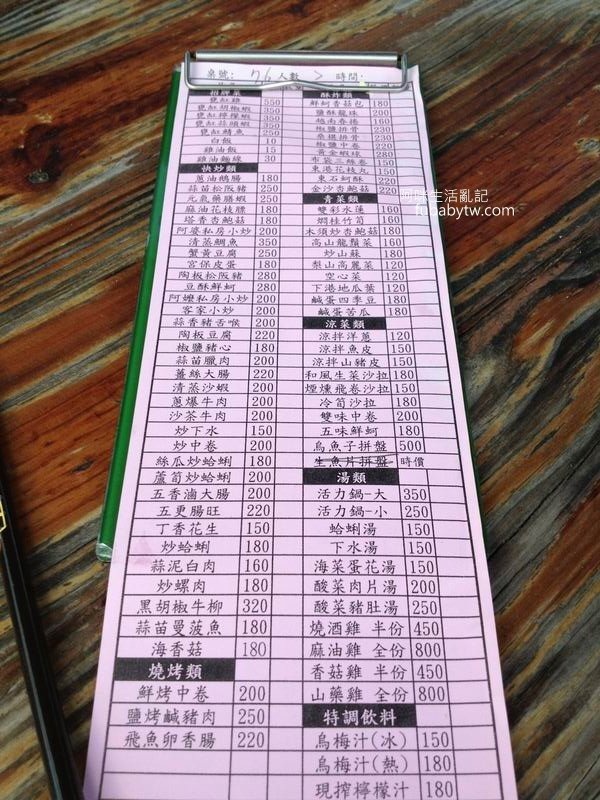 桌號: 人數 時間:
招牌菜
甕缸雞 550
甕缸胡椒蝦 350
甕缸檸檬蝦 350
甕缸蒜頭蝦 350
甕缸鯖魚 250
白飯 10
雞油飯 15
雞油麵線 30
快炒類
蔥油鵝腸 180
蒜苗松阪豬 250
元氣藥膳蝦 250
麻油花枝膘 180
塔香杏鮑菇 180
阿婆私房小炒 200
清蒸鯛魚 350
蟹黃豆腐 250
宮保皮蛋 180
陶板松阪豬 280
豆酥鮮蚵 280
阿嬤私房小炒 200
客家小炒 200
蒜香豬舌喉 200
陶板豆腐 220
椒鹽豬心 180
蒜苗臘肉 200
薑絲大腸 220
清蒸沙蝦 200
蔥爆牛肉 200
沙茶牛肉 200
炒下水 150
炒中卷 200
絲瓜炒蛤蜊 180
蘆筍炒蛤蜊 200
五香滷大腸 200
五更腸旺 220
丁香花生 150
炒蛤蜊 180
蒜泥白肉 160
炒螺肉 180
黑胡椒牛柳 320
蒜苗曼菠魚 180
海香菇 180
燒烤類
鮮烤中卷 200
鹽烤鹹豬肉 250
飛魚卵香腸 220
酥炸類
鮮蚵香菇包 180
鹽酥龍珠 200
越南春捲 160
椒鹽排骨 230
桑椹排骨 230
椒鹽中卷 220
黃金蝦球 280
布袋三絲卷 150
東港花枝丸 150
東石蚵酥 220
金沙杏鮑菇 220
青菜類
雙彩水蓮 160
燜桂竹筍 160
木須炒杏鮑菇 180
高山龍鬚菜 160
炒山蘇 180
梨山高麗菜 120
空心菜 120
下港地瓜葉 120
鹹蛋四季豆 180
鹹蛋苦瓜 180
涼菜類
涼拌洋蔥 120
涼拌魚皮 150
涼拌山豬皮 150
和風生菜沙拉 180
煙燻飛卷沙拉 150
冷筍沙拉 180
雙味中卷 200
五味鮮蚵 180
烏魚子拼盤 500
生魚片拼盤 時價
湯類
活力鍋-大 350
活力鍋-小 250
蛤蜊湯 150
下水湯 150
海菜蛋花湯 150
酸菜肉片湯 200
酸菜豬肚湯 250
燒酒雞 半份 450
麻油雞 全份 800
香菇雞 半份 450
山藥雞 全份 800
特調飲料
烏梅汁(冰) 150
烏梅汁(熱) 180
現搾檸檬汁 180
阿味生活亂記
fubabytw.com